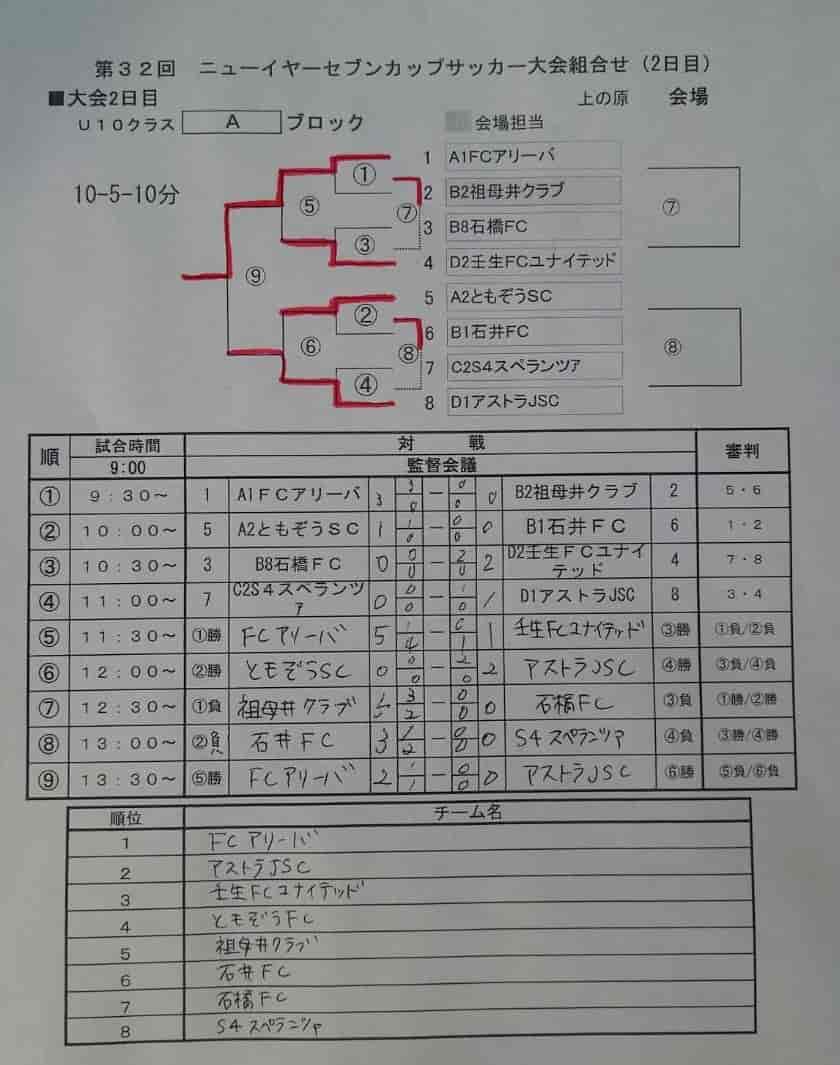 第３２回　ニューイヤーセブンカップサッカー大会組合せ（2日目）
■大会2日目
上の原　会場
Ｕ１０クラス　A　ブロック
会場担当
10-5-10分
1 A1FCアリーバ
2 B2祖母井クラブ
3 B8石橋FC
4 D2壬生FCユナイテッド
5 A2ともぞうSC
6 B1石井FC
7 C2S4スペランツァ
8 D1アストラJSC
① ② ③ ④ ⑤ ⑥ ⑦ ⑧ ⑨
⑦
⑧
順 試合時間 対　戦 審判
9:00 監督会議
① ９：３０～ 1 A1ＦＣアリーバ 3 3 0 － 0 0 0 B2祖母井クラブ 2 5・6
② １０：００～ 5 A2ともぞうＳＣ 1 1 0 － 0 0 0 B1石井ＦＣ 6 1・2
③ １０：３０～ 3 B8石橋ＦＣ 0 0 0 － 2 0 2 D2壬生ＦＣユナイテッド 4 7・8
④ １１：００～ 7 C2S４スペランツァ 0 0 0 － 1 0 1 D1アストラJSC 8 3・4
⑤ １１：３０～ ①勝 FCアリーバ 5 1 4 － 0 1 1 壬生FCユナイテッド ③勝 ①負/②負
⑥ １２：００～ ②勝 ともぞうSC 0 0 0 － 2 0 2 アストラJSC ④勝 ③負/④負
⑦ １２：３０～ ①負 祖母井クラブ 5 3 2 － 0 0 0 石橋FC ③負 ①勝/②勝
⑧ １３：００～ ②負 石井FC 3 1 2 － 0 0 0 S4スペランツァ ④負 ③勝/④勝
⑨ １３：３０～ ⑤勝 FCアリーバ 2 1 1 － 0 0 0 アストラJSC ⑥勝 ⑤負/⑥負
順位 チーム名
1 FCアリーバ
2 アストラJSC
3 壬生FCユナイテッド
4 ともぞうFC
5 祖母井クラブ
6 石井FC
7 石橋FC
8 S4スペランツァ